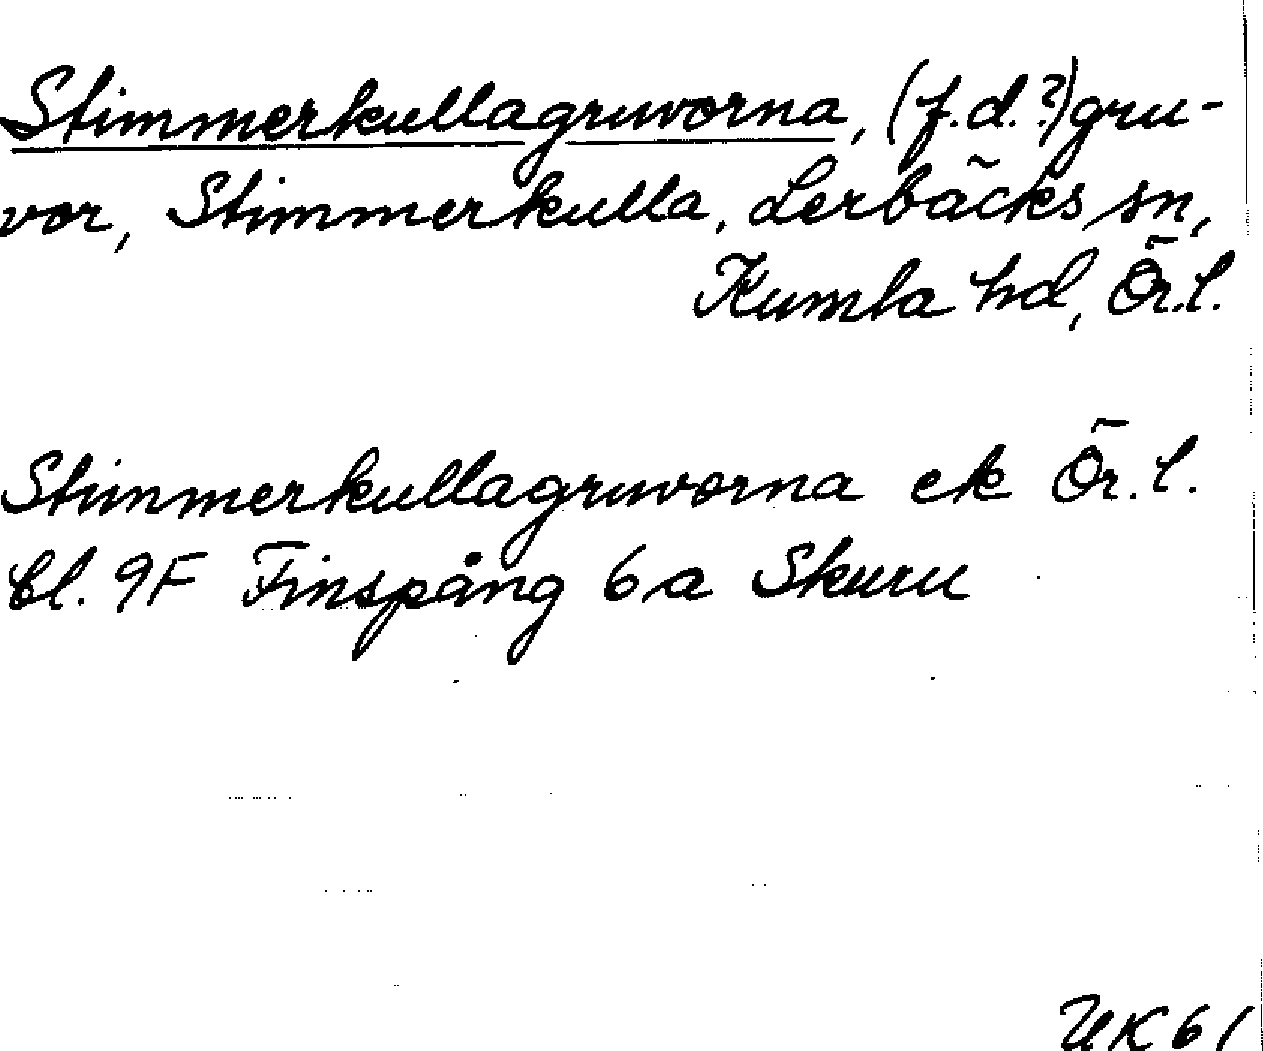 Stimmerkullagruvorna, (f.d.?) gru-
vor, Stimmerkulla, Lerbäcks sn,
Kumla hd, Ör.l.
Stimmerkullagruvorna ek Ör.l.
bl. 9F Finspång 6a Skuru
UK61